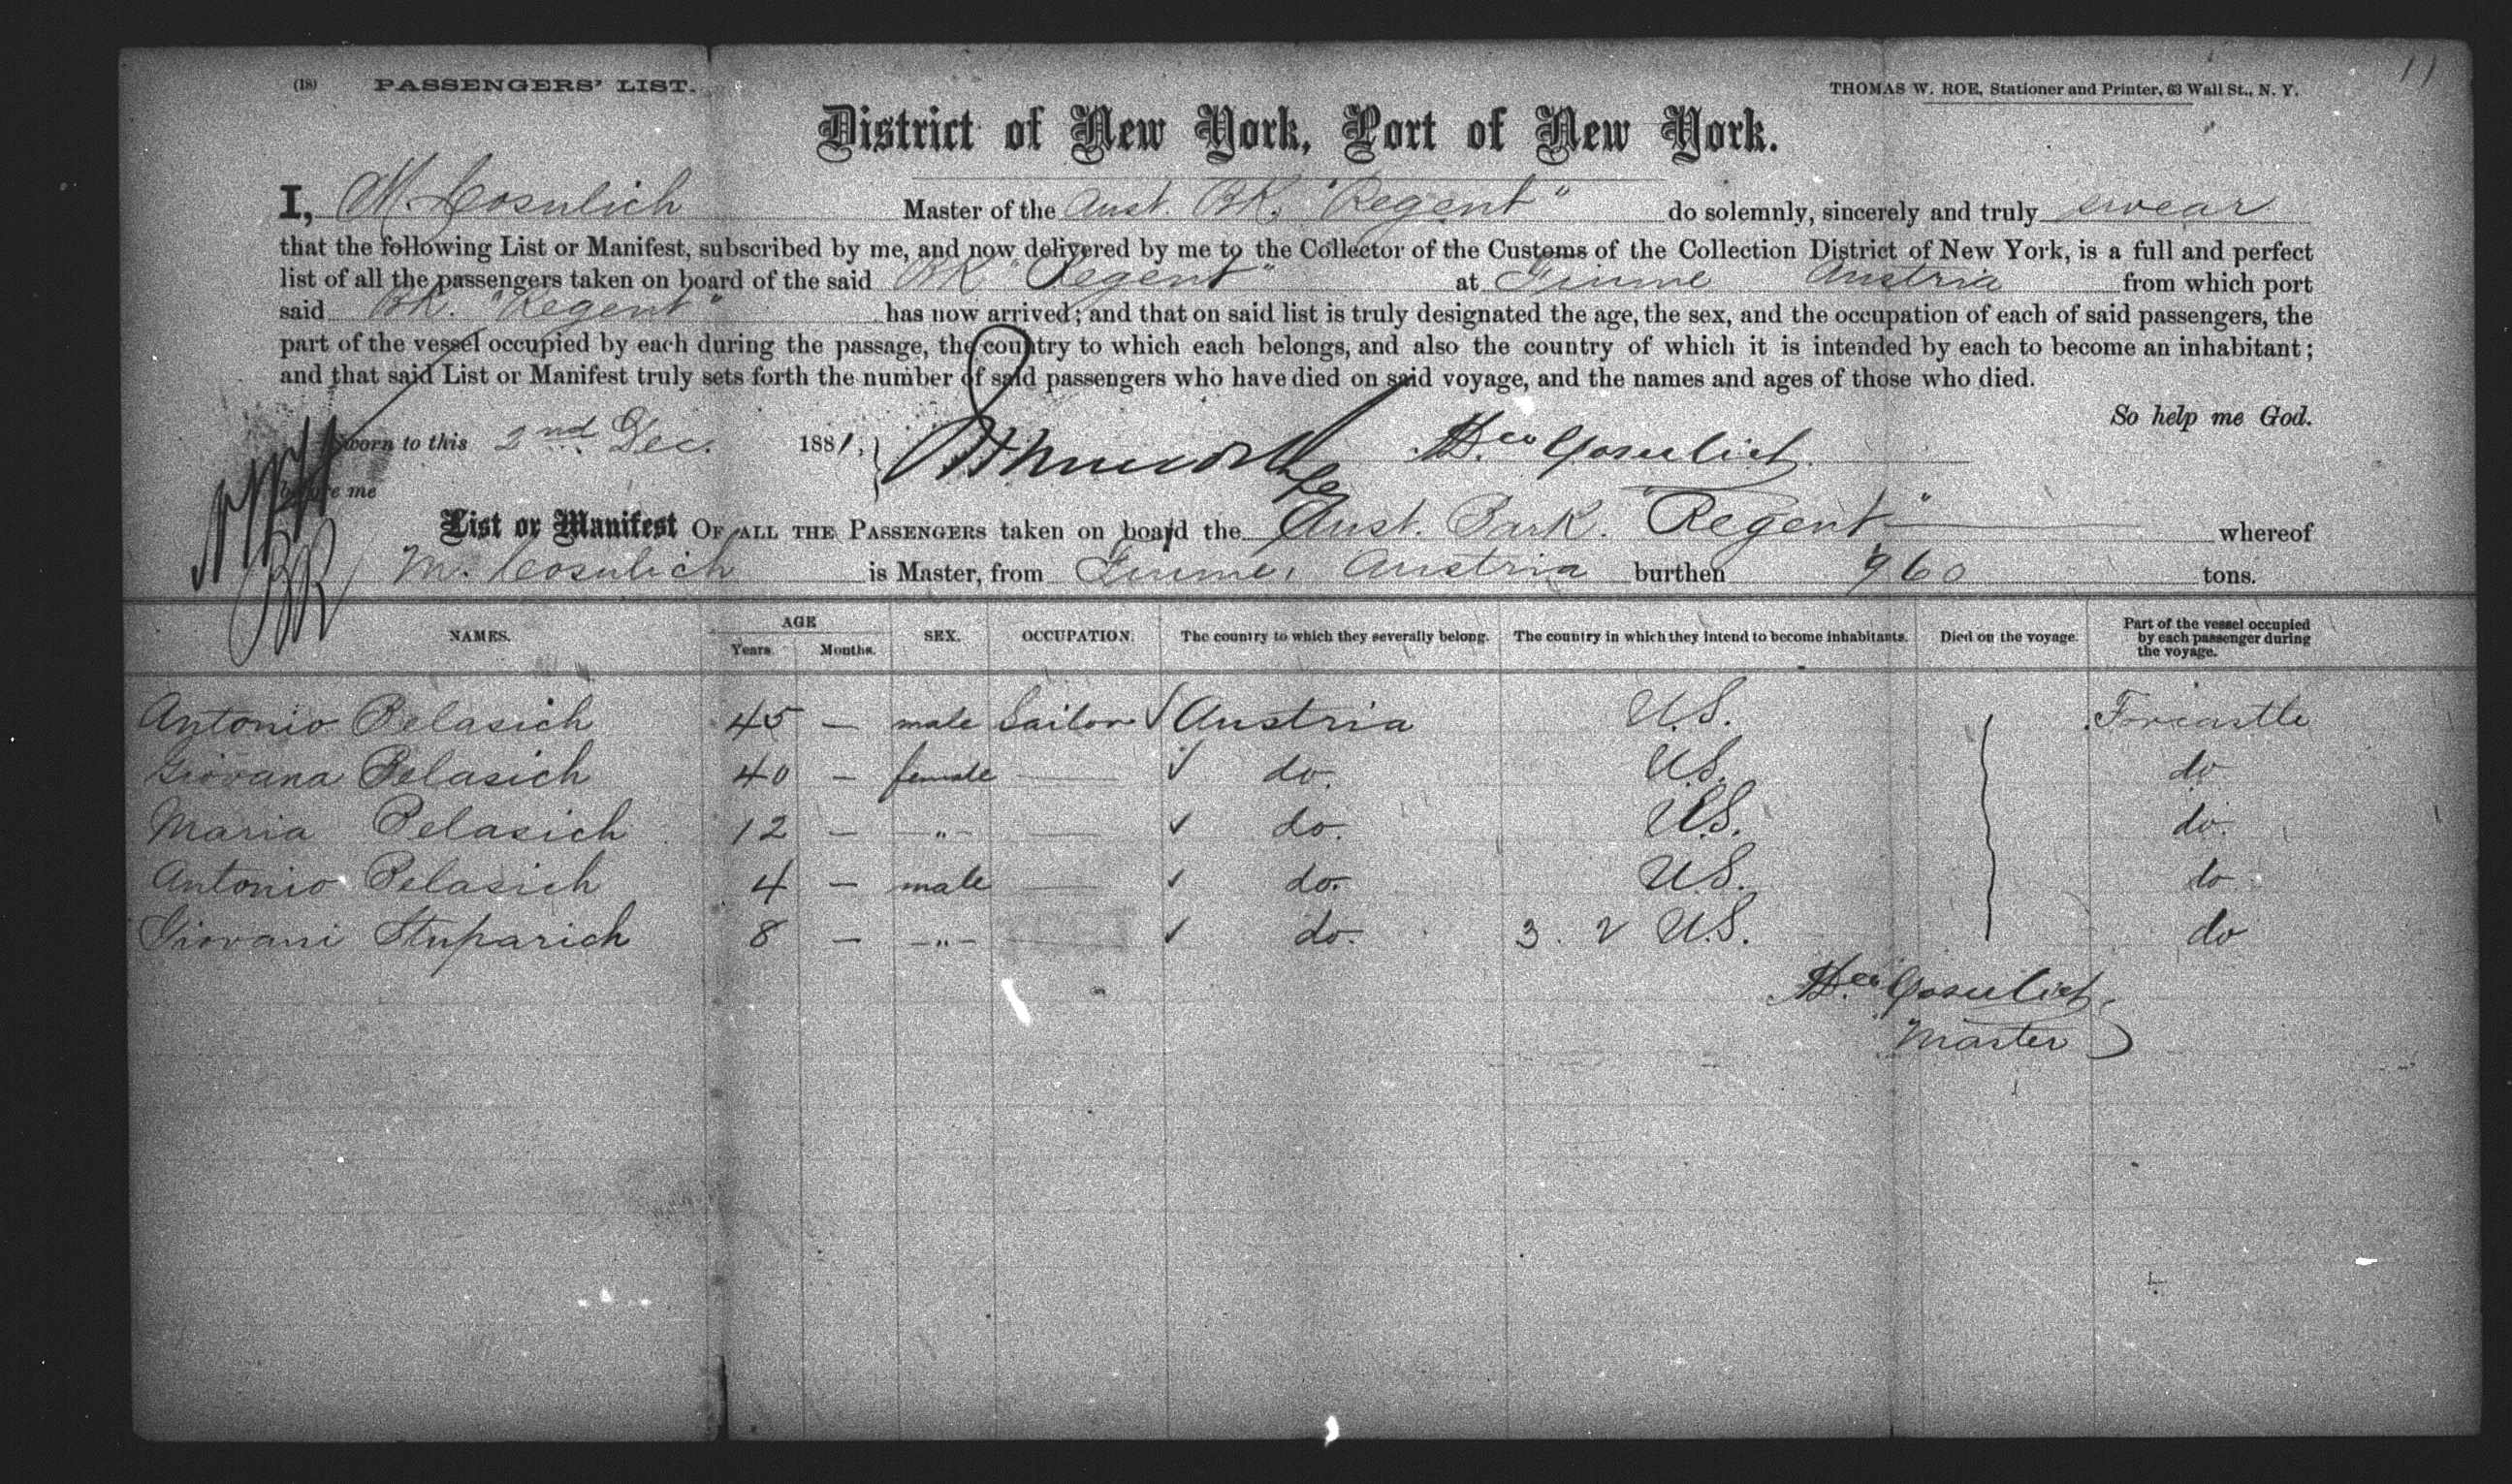 (18) PASSENGERS' LIST.
THOMAS W. ROE, Stationer and Printer, 63 Wall St., N. Y.
11
District of New York, Port of New York.
I, M. Cosulich Master of the Aust. Bk. "Regent" do solemnly, sincerely and truly swear
that the following List or Manifest, subscribed by me, and now delivered by me to the Collector of the Customs of the Collection District of New York, is a full and perfect
list of all the passengers taken on board of the said Bk "Regent" at Fiume Austria from which port
said Bk. "Regent" has now arrived; and that on said list is truly designated the age, the sex, and the occupation of each of said passengers, the
part of the vessel occupied by each during the passage, the country to which each belongs, and also the country of which it is intended by each to become an inhabitant;
and that said List or Manifest truly sets forth the number of said passengers who have died on said voyage, and the names and ages of those who died.
So help me God.
Sworn to this 2nd Dec. 1881, Cosulich
before me
List or Manifest OF ALL THE PASSENGERS taken on board the Aust. Bark. "Regent" whereof
M. Cosulich is Master, from Fiume, Austria burthen 960 tons.
NAMES. AGE Years. Months. SEX. OCCUPATION. The country to which they severally belong. The country in which they intend to become inhabitants. Died on the voyage. Part of the vessel occupied by each passenger during the voyage.
Antonio Pelasich 45 — male Sailor ✓ Austria U.S. Forcastle
Giovana Pelasich 40 — female — ✓ do. U.S. do
Maria Pelasich 12 — —"— — ✓ do. U.S. do.
Antonio Pelasich 4 — male — ✓ do. U.S. do
Giovani Stuparich 8 — —"— ✓ do. 3. 2 U.S. do
Cosulich
Master